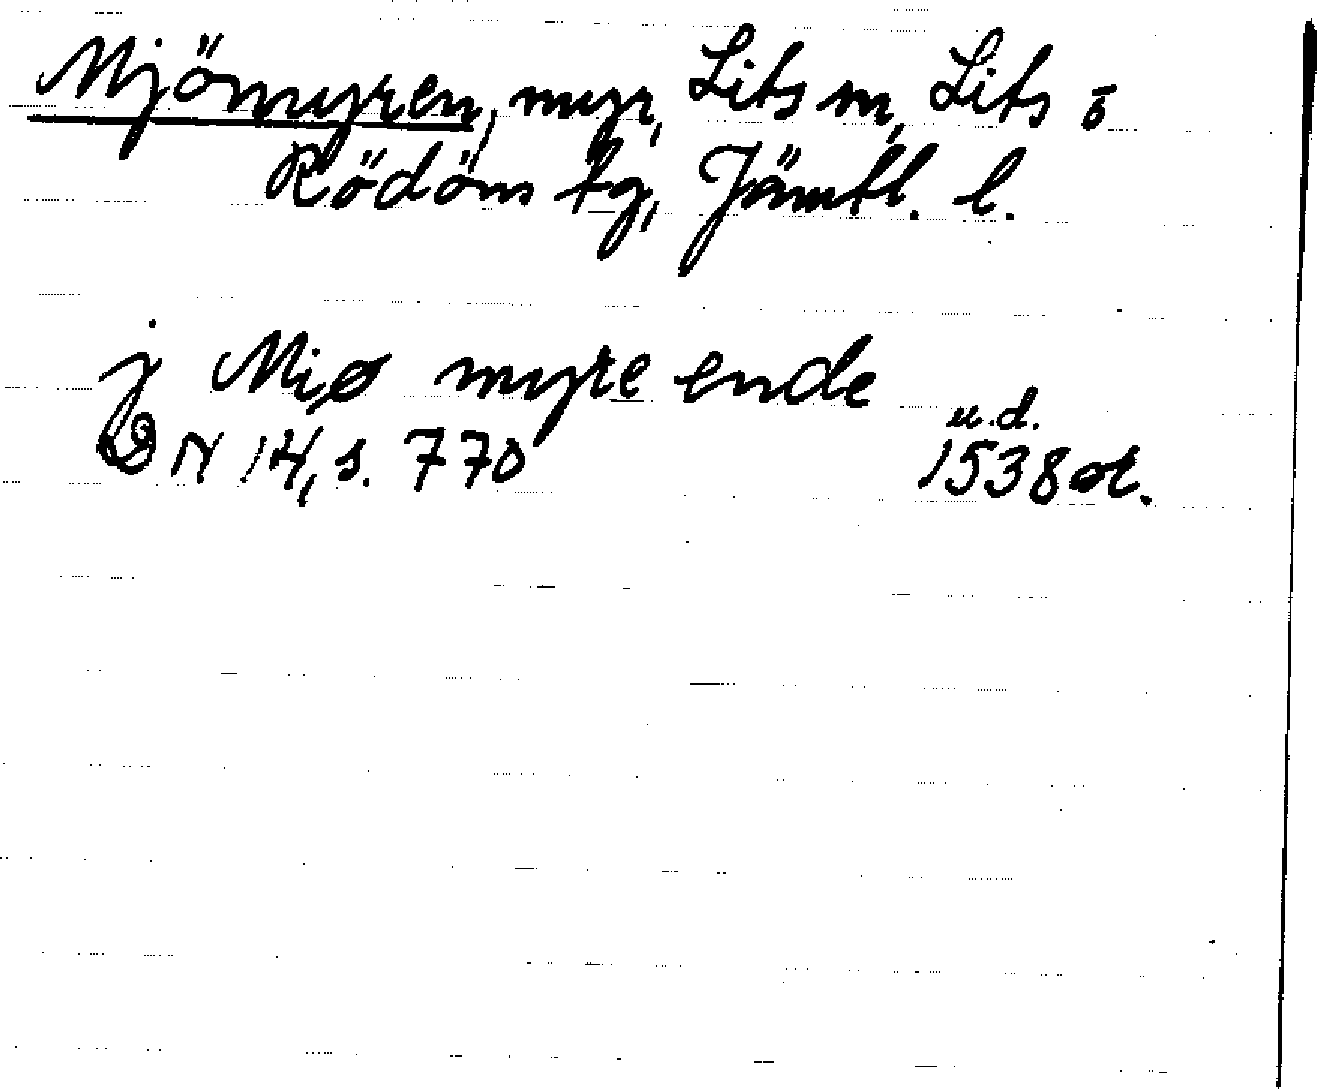 Mjömyren, myr, Lits sn, Lits o
Rödöns tg, Jämtl. l.
j Miø myre ende
u.d.
DN 14, s. 770 1538 ot.